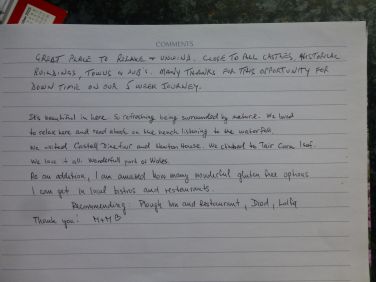 COMMENTS
GREAT PLACE TO RELAX + UNWIND. CLOSE TO ALL CASTLES, HISTORICAL
BUILDINGS, TOWNS & PUB'S. MANY THANKS FOR THIS OPPORTUNITY FOR
DOWN TIME ON OUR 5 WEEK JOURNEY.
It's beautiful in here. So refreshing being surrounded by nature. We loved
to relax here and read a book on the bench listening to the waterfall.
We visited Castell Dinefwr and Newton House. We climbed to Tair Carn Isaf.
We love it all. Wonderful part of Wales.
As an addition, I am amazed how many wonderful gluten free options
I can get in local bistros and restaurants.
Recommending: Plough Inn and Restaurant, Diod,
Thank you! M+M B